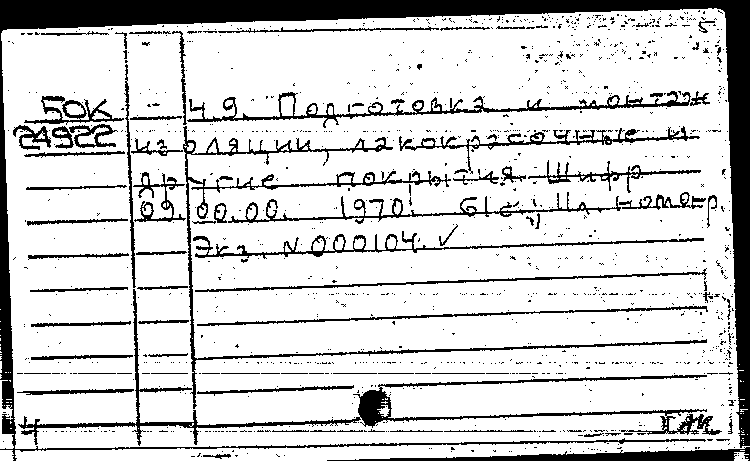 БОК - Ч 9. Подготовка и монтаж
24922 изоляции, лакокрасочные и
другие покрытия. Шифр
09.00.00. 1970. 61с.; Ил. номогр.
Экз. N 000104. ✓
Ч